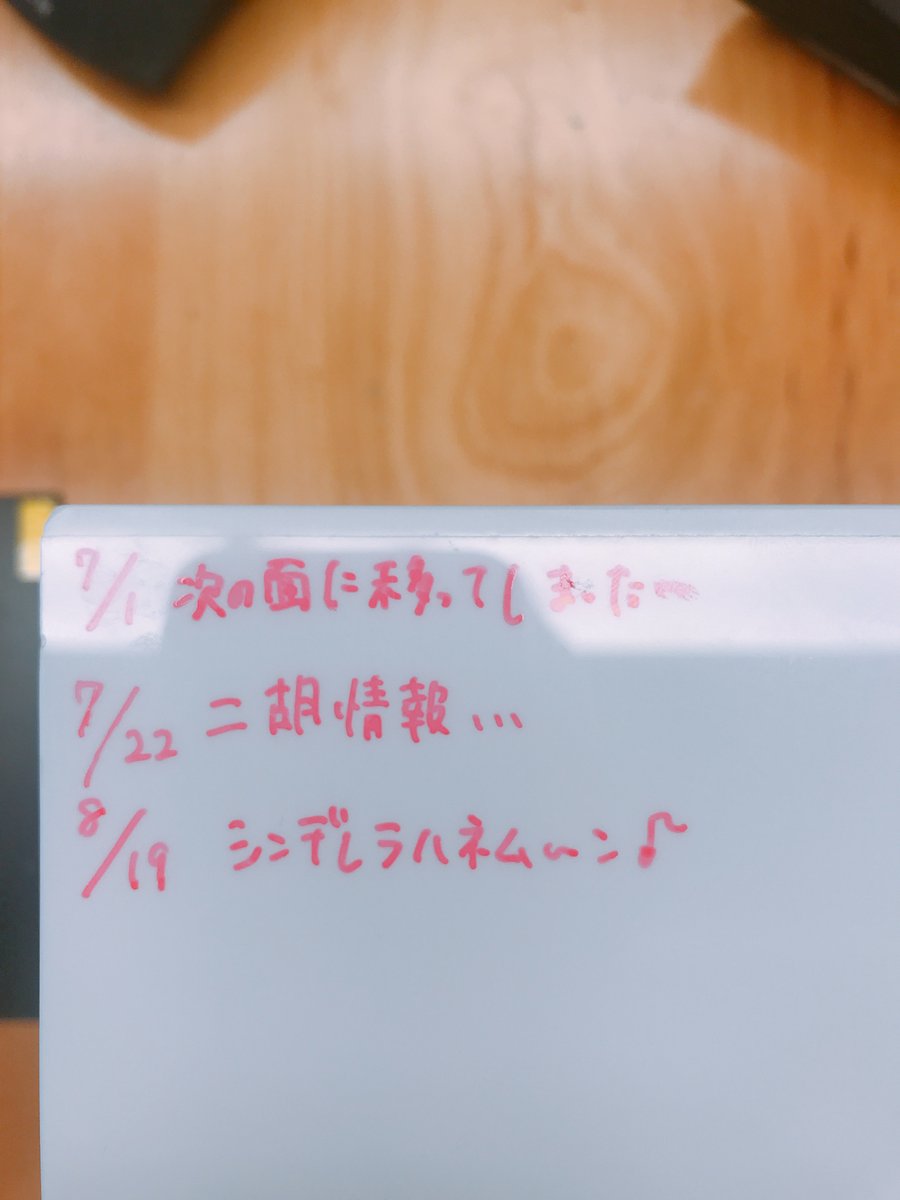 7/1 次の面に移ってしまった〜
7/22 二胡情報...
8/19 シンデレラハネム〜ン♪